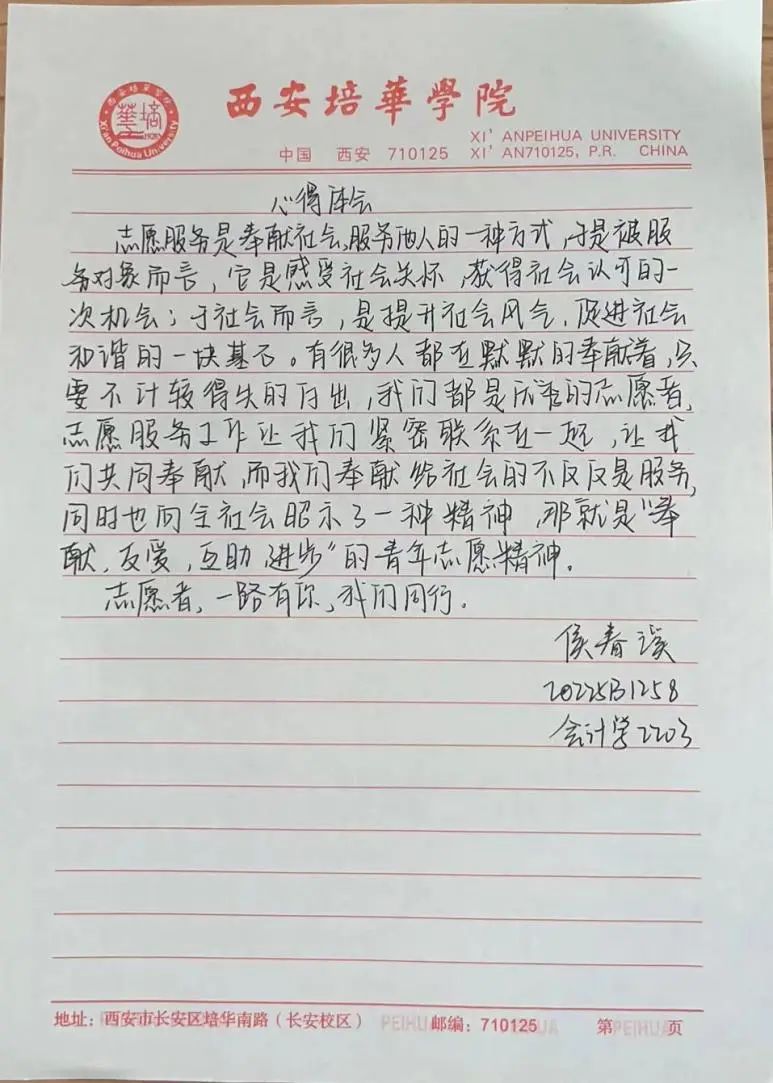 西安培華學院
XI' ANPEIHUA UNIVERSITY
中国 西安 710125 XI' AN710125, P.R. CHINA
西安培華學院
華
Xi'an Peihua University
心得体会
志愿服务是奉献社会,服务他人的一种方式,于是被服
务对象而言,它是感受社会关怀,获得社会认可的一
次机会;于社会而言,是提升社会风气,促进社会
和谐的一块基石。有很多人都在默默的奉献着,只
要不计较得失的付出,我们都是优秀的志愿者,
志愿服务工作让我们紧密联系在一起,让我
们共同奉献,而我们奉献给社会的不仅仅是服务,
同时也向全社会昭示了一种精神,那就是“奉
献,友爱,互助,进步”的青年志愿精神。
志愿者,一路有你,我们同行。
侯春
20225B1258
会计学2203
地址:西安市长安区培华南路(长安校区) 邮编:710125 第 页
PEIHUA